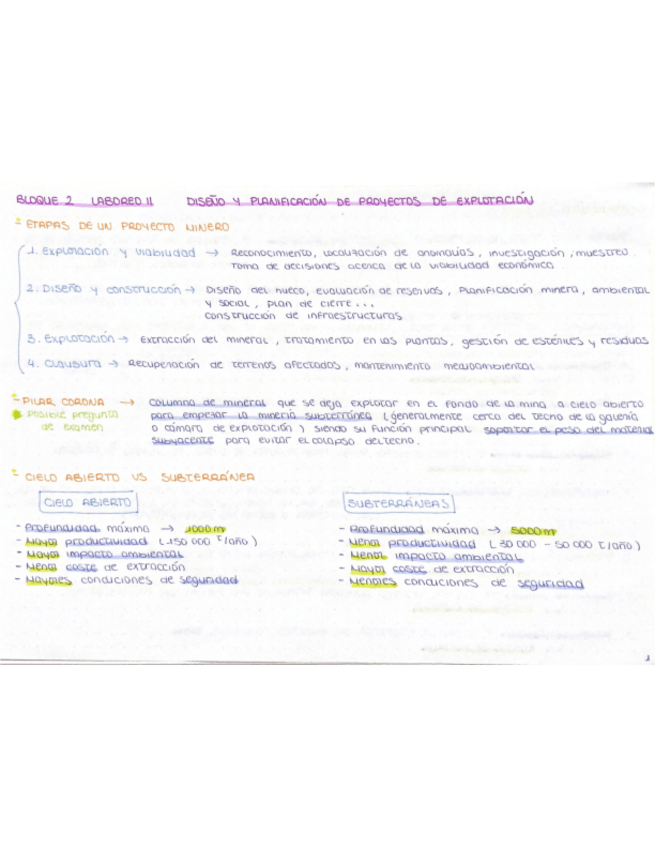 BLOQUE 2 LABOREO II DISEÑO Y PLANIFICACIÓN DE PROYECTOS DE EXPLOTACIÓN
- ETAPAS DE UN PROYECTO MINERO
1. Exploración y viabilidad → Reconocimiento, localización de anomalías, investigación, muestreo
Toma de decisiones acerca de la viabilidad económica
2. Diseño y construcción → Diseño del hueco, evaluación de reservas, Planificación minera, ambiental
y social, plan de cierre...
construcción de infraestructuras
3. Explotación → Extracción del mineral, tratamiento en las plantas, gestión de estériles y residuos
4. Clausura → Recuperación de terrenos afectados, mantenimiento medioambiental
- PILAR CORONA → columna de mineral que se deja explotar en el fondo de la mina a cielo abierto
Posible pregunta para empezar la minería subterránea (generalmente cerca del techo de la galería
de examen o cámara de explotación) siendo su función principal soportar el peso del material
subyacente para evitar el colapso del techo.
- CIELO ABIERTO VS SUBTERRÁNEA
CIELO ABIERTO SUBTERRÁNEAS
- Profundidad máxima → 1000 m - Profundidad máxima → 5000 m
- Mayor productividad (150 000 T/año) - Menor productividad (30 000 - 50 000 T/año)
- Mayor impacto ambiental - Menor impacto ambiental
- Menor coste de extracción - Mayor coste de extracción
- Mayores condiciones de seguridad - Menores condiciones de seguridad